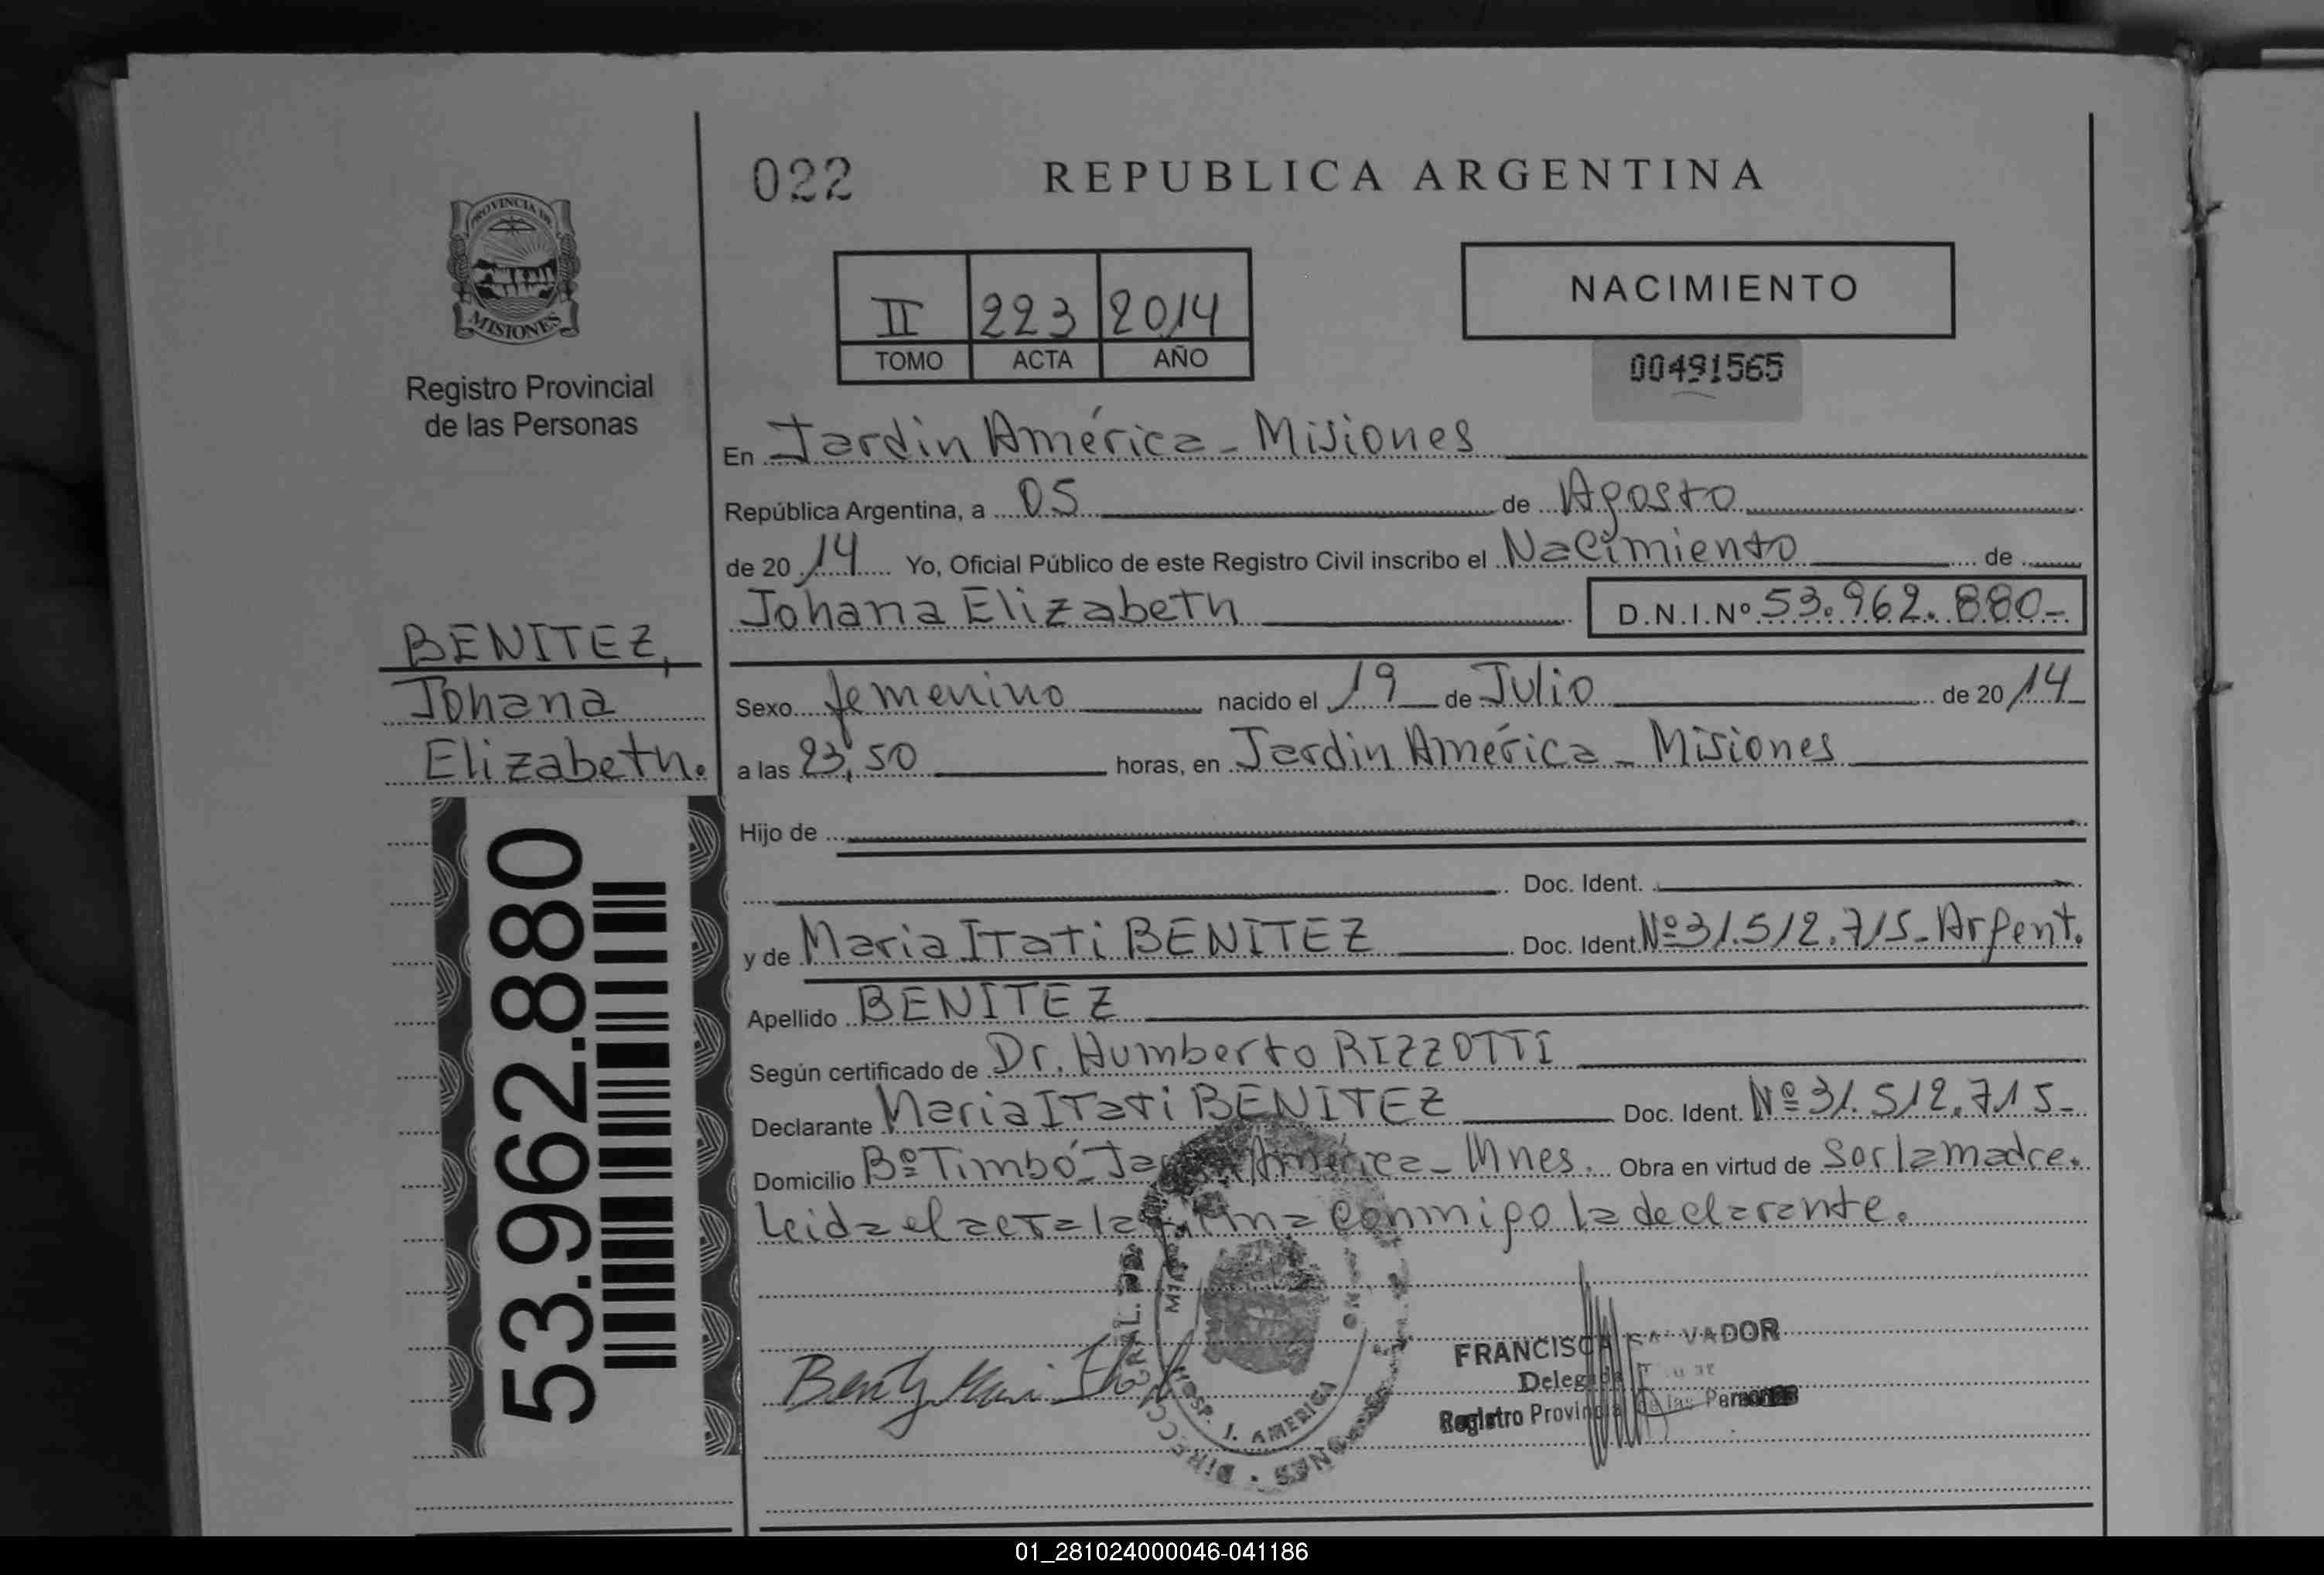 022
REPUBLICA ARGENTINA
PROVINCIA DE
MISIONES
Registro Provincial
de las Personas
II 223 2014
TOMO ACTA AÑO
NACIMIENTO
00491565
En Jardin América - Misiones
República Argentina, a 05 de Agosto
de 2014 Yo, Oficial Público de este Registro Civil inscribo el Nacimiento de
Johana Elizabeth D.N.I.Nº 53.962.880-
BENITEZ,
Johana
Elizabeth.
53.962.880
Sexo femenino nacido el 19 de Julio de 2014
a las 23,50 horas, en Jardin América - Misiones
Hijo de
Doc. Ident.
y de Maria Itati BENITEZ Doc. Ident. Nº 31.512.715- Argent.
Apellido BENITEZ
Según certificado de Dr. Humberto RIZZOTTI
Declarante Maria Itati BENITEZ Doc. Ident. Nº 31.512.715-
Domicilio Bº Timbó - Jardin América - Mnes. Obra en virtud de ser la madre.
Leida el acta la firma conmigo la declarante.
HOSP. J. AMERICA
FRANCISCA SALVADOR
Delegada
Registro Provincial de las Personas
01_281024000046-041186